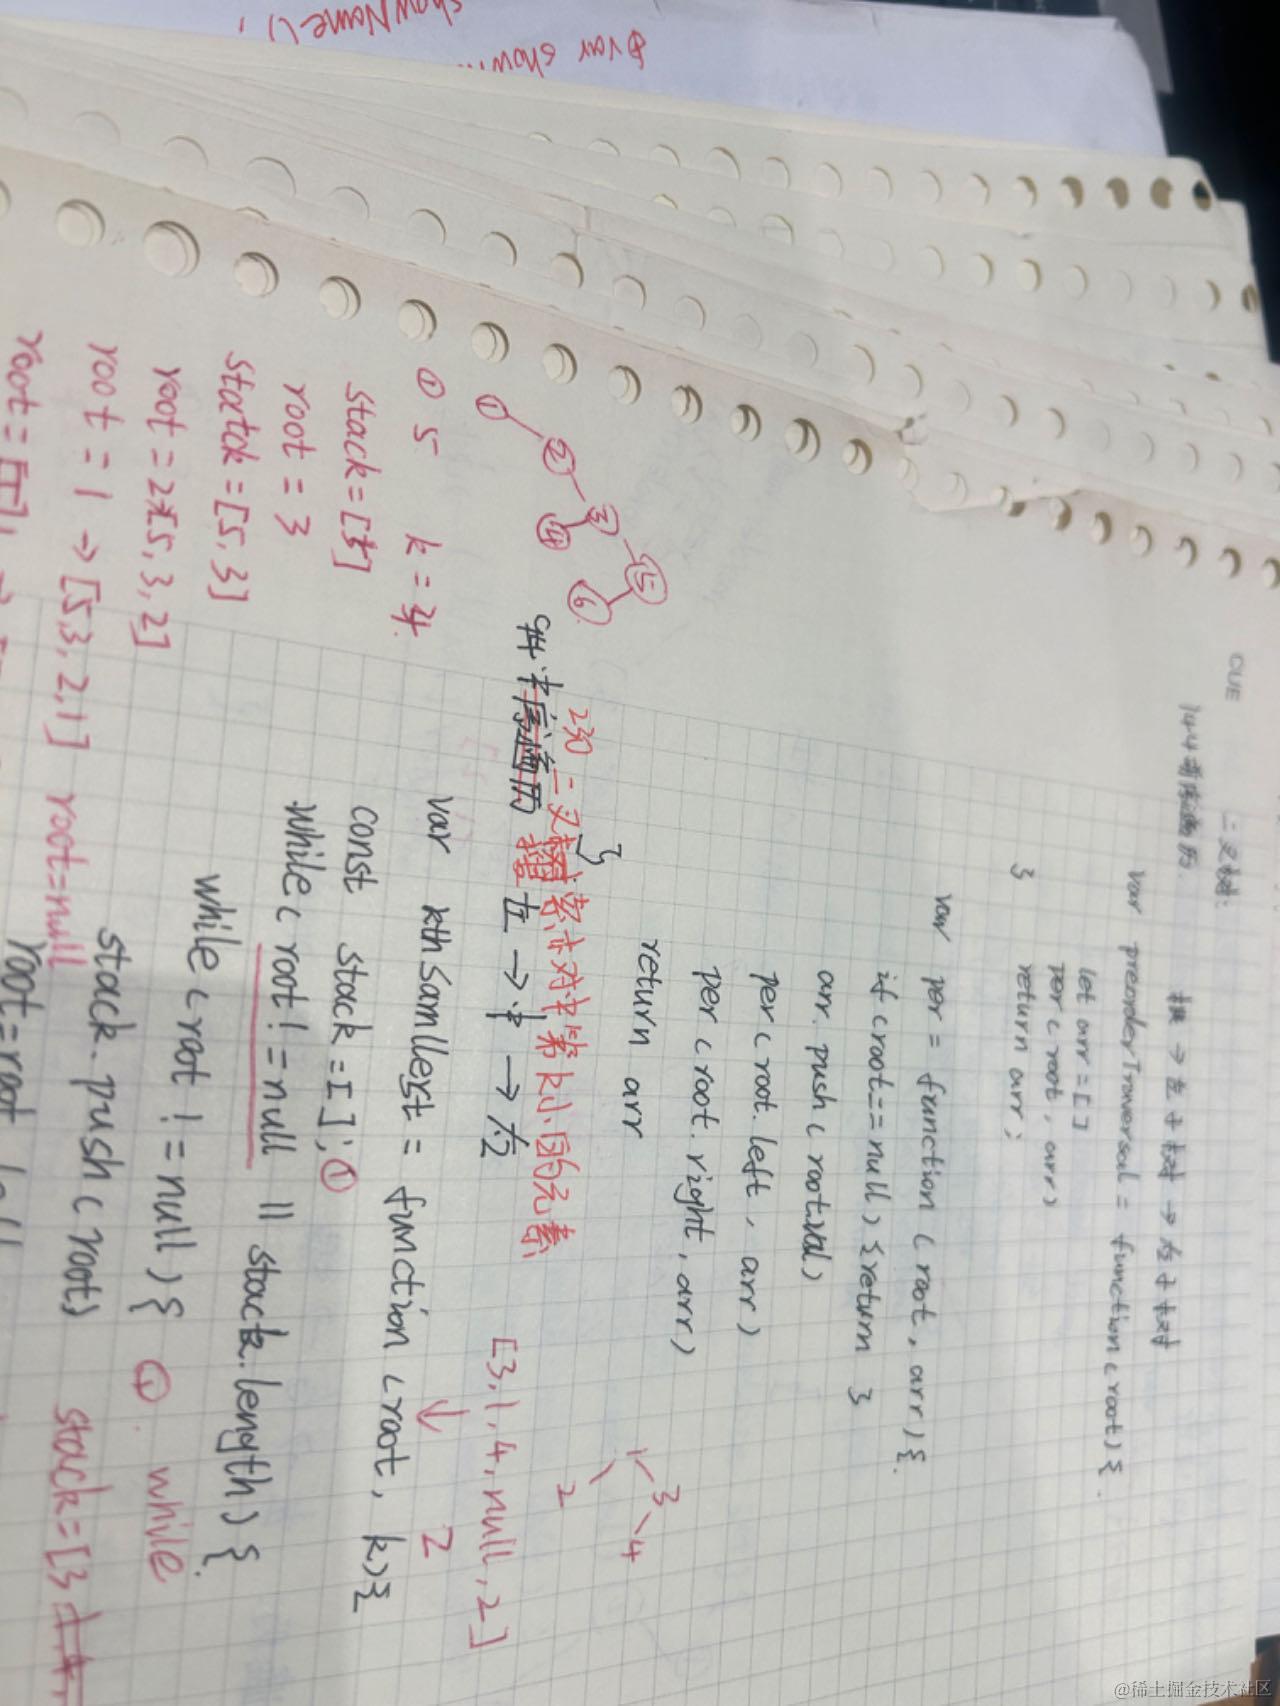 var show
showName();
CUE 二叉树:
144 前序遍历 根 → 左子树 → 右子树
var preorderTraversal = function(root) {
let arr = []
per(root, arr)
return arr;
}
var per = function (root, arr) {
if (root==null) {return }
arr.push(root.val)
per(root.left, arr)
per(root.right, arr)
return arr
}
230 二叉搜索树中第k小的元素
中序遍历 左 → 中 → 右
[3,1,4,null,2]
3
1 4
2
var kthSamllest = function (root, k) {
↓
2
const stack = []; ①
while (root != null || stack.length) {
while (root != null) { ① while
stack.push(root) stack=[3
root=root.
5
3 6
2 4
1
① 5 k=4
stack=[5]
root = 3
statck=[5,3]
root=2 [5,3,2]
root = 1 → [5,3,2,1] root=null
root=
@稀土掘金技术社区